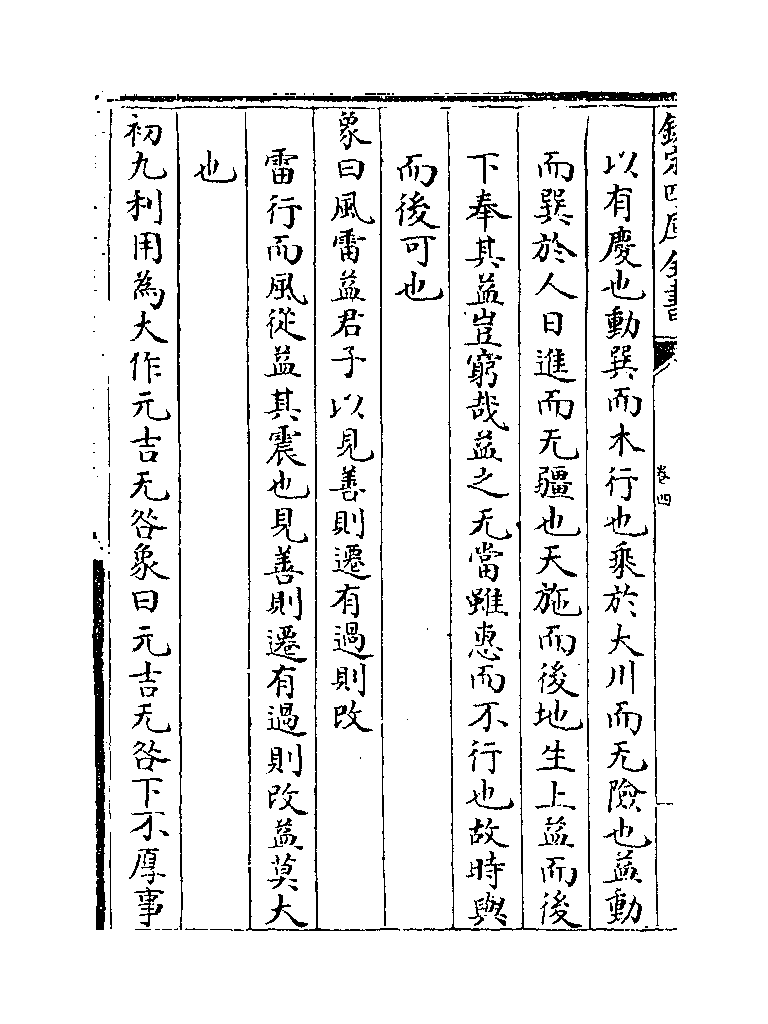 欽定四庫全書
卷四
以有慶也動巽而木行也乘於大川而无險也益動
而巽於人日進而无疆也天施而後地生上益而後
下奉其益豈窮哉益之无當雖惠而不行也故時與
而後可也
象曰風雷益君子以見善則遷有過則改
雷行而風從益其震也見善則遷有過則改益莫大
也
初九利用為大作元吉无咎象曰元吉无咎下不厚事